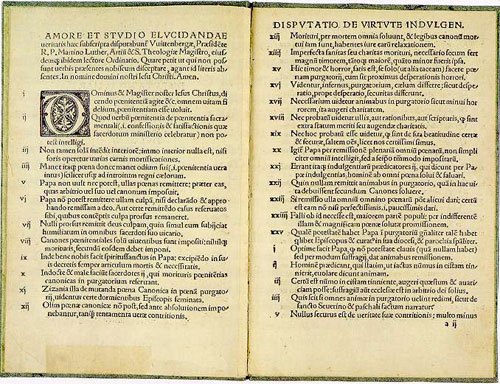 AMORE ET STVDIO ELVCIDANDAE
ueritatis hæc subscripta disputabunt Vuittenbergæ, Præsidēte
R. P. Martino Luther, Artiū & S. Theologiæ Magistro, eius
demq́; ibidem lectore Ordinario. Quare petit ut qui non pos
sunt uerbis præsentes nobiscum disceptare, agant id literis ab
sentes. In nomine domini nostri Iesu Christi. Amen.
i Ominus & Magister noster Iesus Christus, di
cendo pœnitentiā agite &c. omnem uitam fi
delium, pœnitentiam esse uoluit.
ij Quod uerbū pœnitentia de pœnitentia sacra
mentali, i. confessiōis & satisfactiōis quæ
sacerdotum ministerio celebratur) non po
test intelligi.
iij Non tamen solā intēdit interiorē: immo interior nulla est, nisi
foris operetur uarias carnis mortificationes.
iiij Manet itaq; pœna donec manet odium sui, i. pœnitentia uera
intus) scilicet usq; ad introitum regni cœlorum.
v Papa non uult nec potest, ullas pœnas remittere: præter eas,
quas arbitrio uel suo uel canonum imposuit.
vj Papa nō potest remittere ullam culpā, nisi declarādo & appro
bando remissam a deo. Aut certe remittēdo casus reseruatos
sibi, quibus contēptis culpa prorsus remaneret.
vij Nulli prorsus remittit deus culpam, quin simul eum subijciat
humiliatum in omnibus sacerdoti suo uicario.
viij Canones pœnitentiales solū uiuentibus sunt impositi: nihilq́;
morituris, secundū eosdem debet imponi.
ix Inde bene nobis facit spiritussanctus in Papa: excipiēdo in su
is decretis semper articulum mortis & necessitatis.
x Indocte & male faciūt sacerdotes ij, qui morituris pœnitētias
canonicas in purgatorium reseruant.
xj Zizania illa de mutanda pœna Canonica in pœnā purgato
rij, uidentur certe dormientibus Episcopis seminata.
xij Olim pœnæ canonicæ nō post, sed ante absolutionem impo
nebantur, tanq̄ tentamenta ueræ contritionis.
DISPVTATIO DE VIRTVTE INDVLGEN.
xiij Morituri, per mortem omnia soluunt, & legibus canonū mor
tui iam sunt, habentes iure earū relaxationem.
xiiij Imperfecta sanitas seu charitas morituri, necessario secum fert
magnū timorem, tantoq́; maiorē, quāto minor fuerit ipsa.
xv Hic timor & horror, satis est, se solo (ut alia taceam) facere pœ
nam purgatorij, cum sit proximus desperationis horrori.
xvj Videntur, infernus, purgatorium, cælum differre: sicut despe
ratio, prope desperatio, securitas differunt.
xvij Necessarium uidetur animabus in purgatorio sicut minui hor
rorem, ita augeri charitatem.
xviij Nec probatū uidetur ullis, aut rationibus, aut scripturis, q̄ sint
extra statum meriti seu augendæ charitatis.
xix Nec hoc probatū esse uidetur, q̄ sint de sua beatitudine certæ
& securæ, saltem oēs, licet nos certissimi simus.
xx Igit̄ Papa per remissionē plenariā omniū pœnarū, non simpli
citer omniū intelligit, sed a seipso tātūmodo impositarū.
xxj Errant itaq; indulgentiarū prædicatores ij, qui dicunt per Pa
pæ indulgentias, hominē ab omni pœna solui & saluari.
xxij Quin nullam remittit animabus in purgatorio, quā in hac ui
ta debuissent secundum Canones soluere.
xxiij Si remissio ulla omniū omnino pœnarū pōt alicui dari; certū
est eam nō nisi perfectissimis, i. paucissimis dari.
xxiiij Falli ob id necesse est, maiorem partē populi: per indifferentē
illam & magnificam pœnæ solutæ promissionem.
xxv Qualē potestatē habet Papa in purgatoriū gñaliter talē habet
quilibet Episcopus & curatus in sua diocesi, & parochia sp̄ālir.
i Optime facit Papa, q̄ nō potestate clauis (quā nullam habet)
sed per modum suffragij, dat animabus remissionem.
ij Hominē prædicant, qui statim, ut iactus nūmus in cistam tinni
erit, euolare dicunt animam.
iij Certū est nūmo in cistam tinniente, augeri quæstum & auari
ciam posse: suffragiū aūt ecclesiæ est in arbitrio dei solius.
iiij Quis scit si omnes animæ in purgatorio uelint redimi, sicut de
sancto Seuerino & paschali factum narratur.
v Nullus securus est de ueritate suæ contritionis; multo minus
a ij